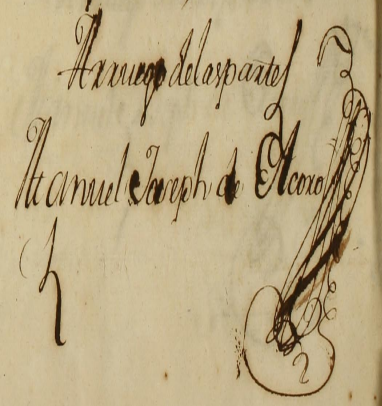 Arruego delas partes
Manuel Joseph de